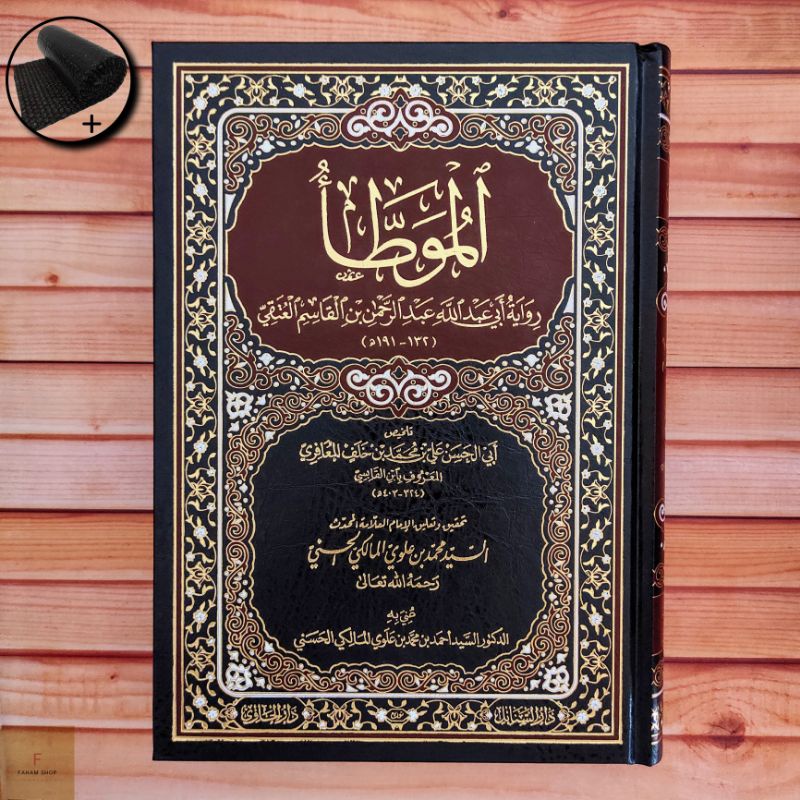 +
ٱلْمُوَطَّأُ
رِوَايَةُ أَبِي عَبْدِ اللَّهِ عَبْدِ الرَّحْمٰنِ بْنِ الْقَاسِمِ الْعُتَقِيِّ
(١٣٢ - ١٩١ه)
تلخيص
أَبِي الحَسَنِ عَلِيِّ بْنِ مُحَمَّدِ بْنِ خَلَفٍ المَعَافِرِيّ
المَعْرُوفِ بِابْنِ القَابِسِيّ
(٣٢٤-٤٠٣ه)
تحقيق وتعليق الإمام العلامة المحدّث
السَّيّد محمّد بن علوي المالكي الحسني
رَحِمَهُ الله تَعَالى
عُنِيَ بِهِ
الدكتور السّيد أحمد بن محمّد بن علوي المالكي الحسَني
دار السنابل
F
FAHAM SHOP